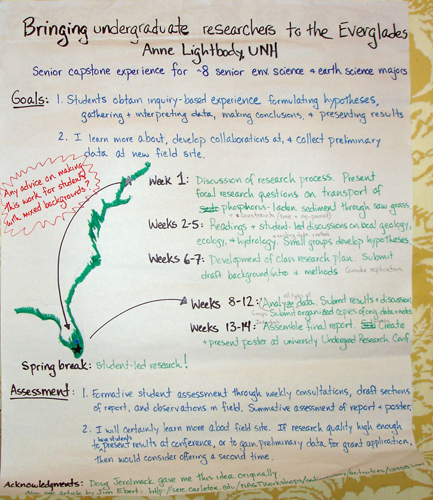 Bringing undergraduate researchers to the Everglades
Anne Lightbody, UNH
Senior capstone experience for ~8 senior env. science + earth science majors
Goals: 1. Students obtain inquiry-based experience formulating hypotheses,
gathering + interpreting data, making conclusions, + presenting results
2. I learn more about, develop collaborations at, + collect preliminary
data at new field site.
Any advice on making
this work for students
with mixed backgrounds?
Week 1: Discussion of research process. Present
focal research questions on transport of
phosphorus-laden sediment through saw grass
+ constraints (time +
Weeks 2-5: Readings + student-led discussions on local geology,
ecology, + hydrology. Small groups develop hypotheses
Weeks 6-7: Development of class research plan. Submit
draft background/intro + methods Consider replication
Weeks 8-12: Analyze data. Submit results + discussion
Submit organized copies of orig. data + notes
Weeks 13-14: Assemble final report. Create
+ present poster at university Undergrad Research Conf.
Spring break: student-led research!
Assessment: 1. Formative student assessment through weekly consultations, draft sections
of report, and observations in field. Summative assessment of report + poster.
2. I will certainly learn more about field site. If research quality high enough
to have students present results at conference, or to gain preliminary data for grant application,
then would consider offering a second time.
Acknowledgments: Doug Jerolmack gave me this idea originally
Also see article by Jim Ebert: http://serc.carleton.edu/